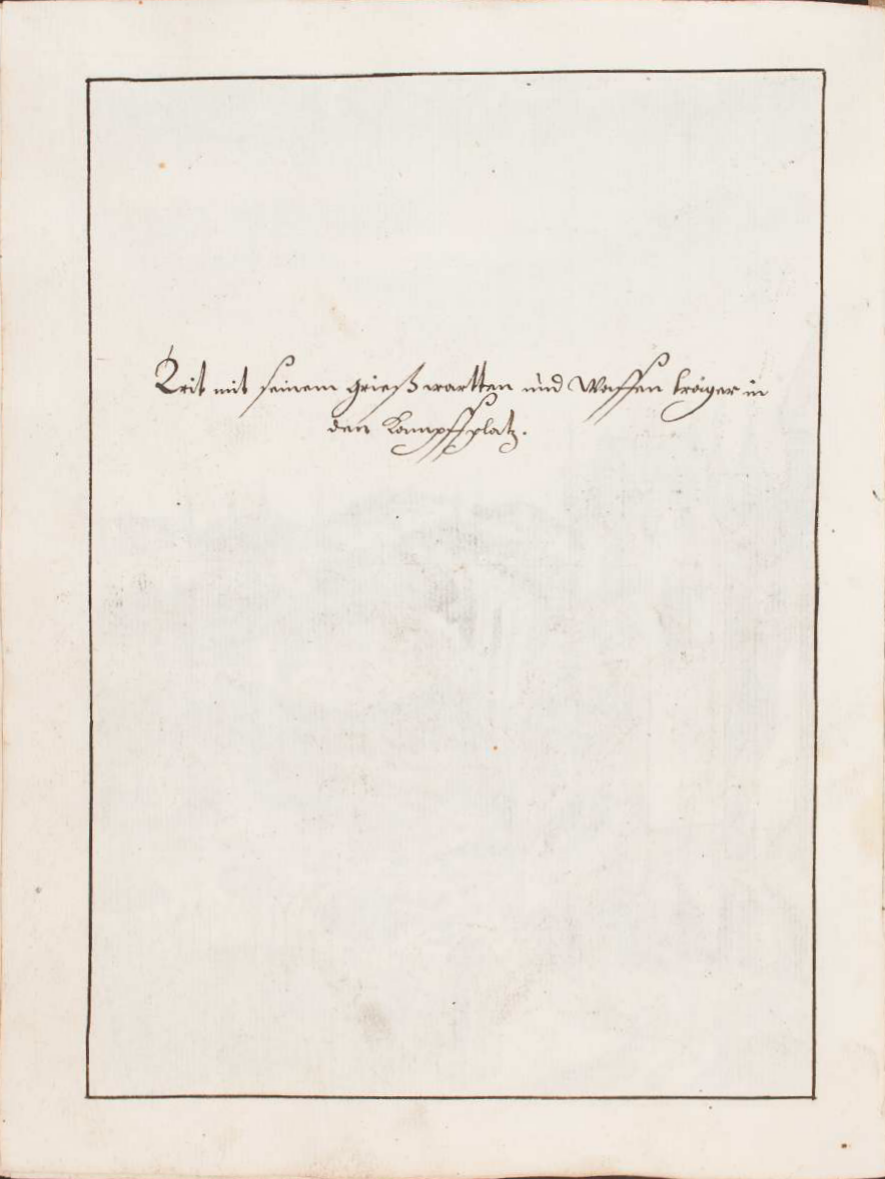 Trit mit seinem grießwartten und Waffen träger in
den Kampffplatz.